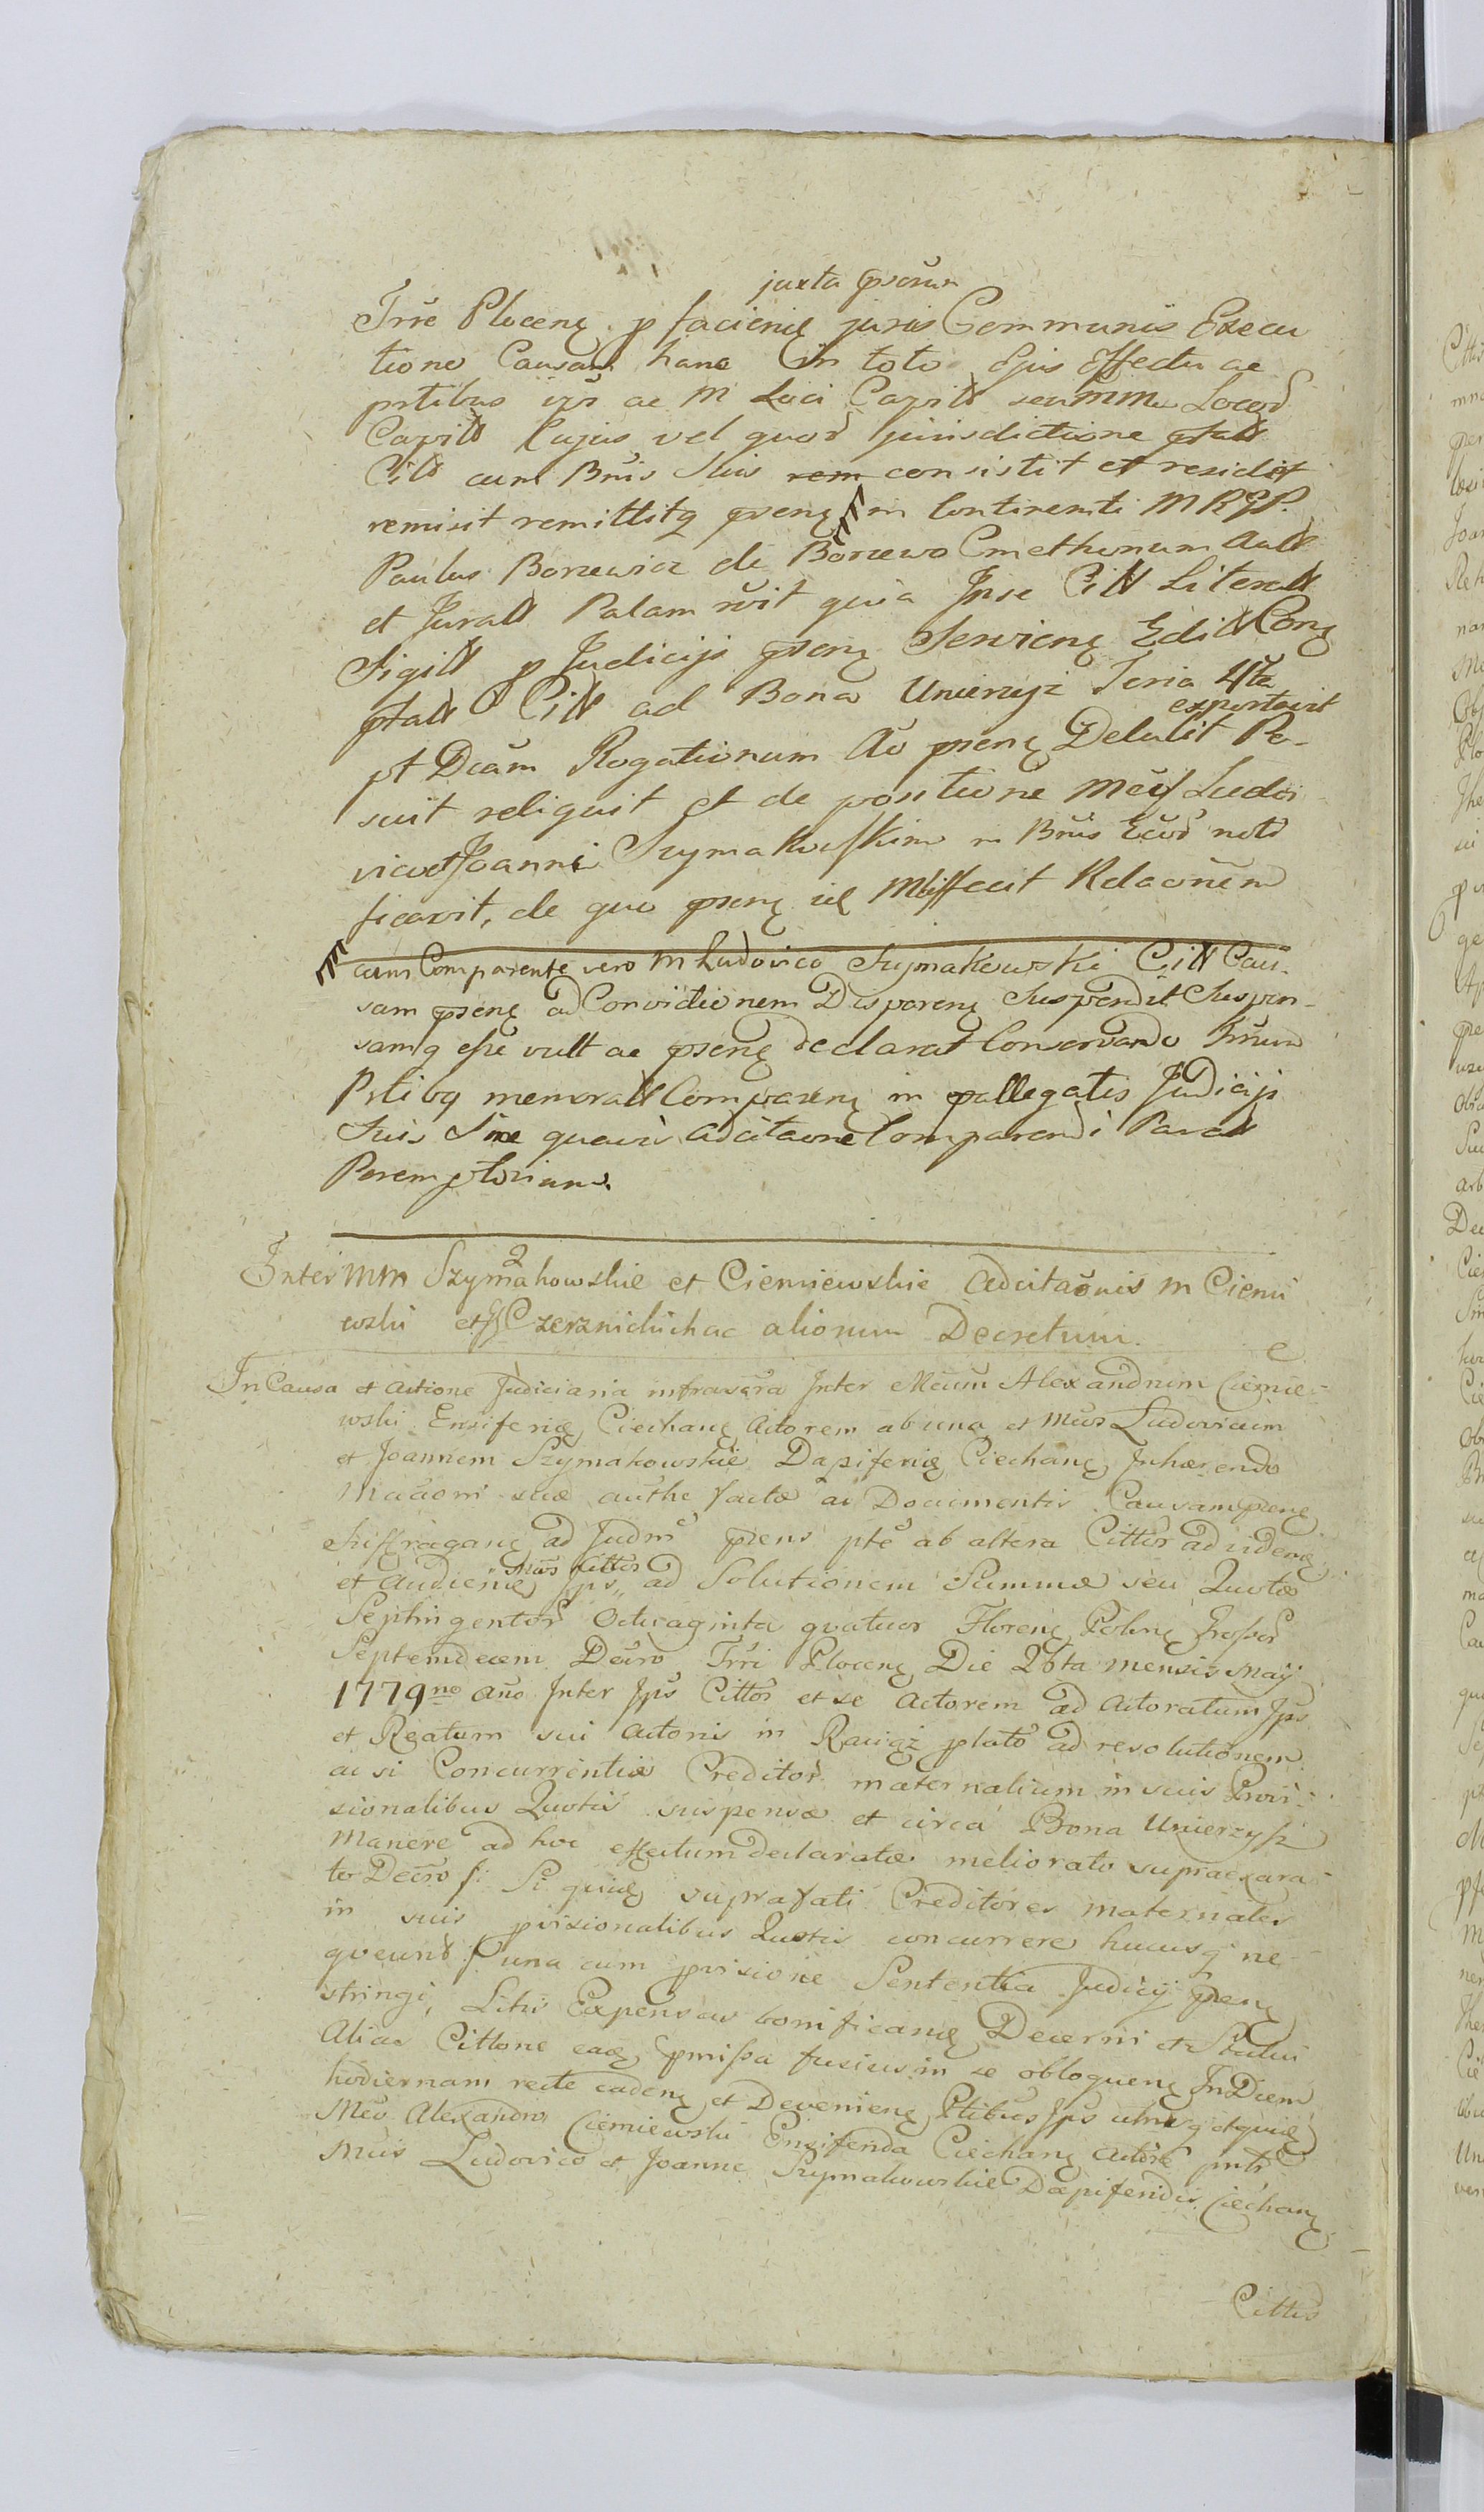 juxta psorum
Trre Plocenꝫ p facienꝫ juris Communis Execu
tione Causam hanc in toto Ejus Effectu ac
prtibus ijs ac M Loci Capitł seu MM Locorꝫ
Capitł Cujus vel quorꝫ jurisdictione pfatł
Citł cum Bnis Suis rem consistit et residet
remisit remittitq psenꝫ in Continenti MRGP.
Paulus Borzewicz de Borzewo Cmethonum autł
et Juratł Palam rvit quia Ipse Citł Literatł
Sigitł p Judicijs psenꝫ Servienꝫ Editł Conꝫ
pfatł Citł ad Bona Unierzyż Feria 4ta
exportavit
pt Dcam Rogationum Ao psenꝫ Detulit Po-
suit reliquit et de positione Mcis Ludo
vico et Joanni Szymakowskim in Bnis Eorꝫ noti
ficavit, de quo psenꝫ fecit Relaonem
cum Comparente vero M Ludovico Szymakowski Citł Cau-
sam psenꝫ ad Convictionem Disparenꝫ Suspendit Suspen-
samq esse vult ac psenꝫ declarat Conservando Trnum
Prtibq memoratł Comparenꝫ in pallegatis Judicijs
Suis Sine quavis adcitaone Comparendi Paratł
Peremptorium.
Inter MM Szymakowskie et Ciemiewskie adcitaonis M Ciemi
ewski et Czerznickich ac aliorum Decretum.
In Causa et actione Judiciaria infrascra Inter Mcum Alexandrum Ciemie-
wski Ensiferiꝫ Ciechanꝫ Actorem ab una et Mcos Ludovicum
et Joannem Szymakowskie Dapiferiꝫ Ciechanꝫ Inhærendo
Macaoni suæ authe factæ ac Documentis Causam psenꝫ
Suffraganꝫ ad Judm psens pte ab altera Cittos ad videnꝫ
Mcos Cittos
et Audienꝫ Ips ad Solutionem Summæ seu Quotæ
Septingentorꝫ Octuaginta quatuor Florenꝫ Polnꝫ Grossorꝫ
Septemdecem Decro Trri Plocenꝫ Die 26ta mensis Maij
1779no Ano Inter Ips Cittos et se Actorem ad Actoratum Ips
et Reatum sui Actoris in Raciąż plato ad resolutionem
ac si Concurrentiæ Creditorꝫ maternalium in suis Provi-
sionalibus Quotis suspensæ et circa Bona Unierzysz
manere ad hoc effectum declaratæ meliorato supraexara-
to Decro /: Si quiꝫ suprafati Creditores maternales
in suis pvisionalibus Quotis concurrere hucusq ne-
queunt :/ una cum pvisione Sententia Judicij psenꝫ
stringi, Litis Expensas bonificanꝫ Decerni et Statui
Alias Cittone eaꝫ pmissa fusius in se obloquenꝫ In Diem
hodiernam recte cadenꝫ et Devenienꝫ Ptibus Ips utrisq et quiꝫ
Mco Alexandro Ciemiewski Ensiferida Ciechanꝫ Actore pnte
Mcis Ludovico et Joanne Szymakowskie Dapiferidis Ciechanꝫ
Cittis